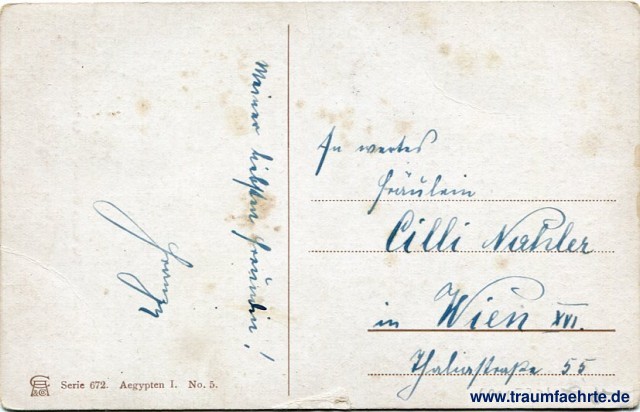 Meiner liebsten Freundin!
Franz
An wertes
Fräulein
Cilli Nahler
in Wien XVI.
Thaliastraße 55
Serie 672. Aegypten I. No. 5.
www.traumfaehrte.de